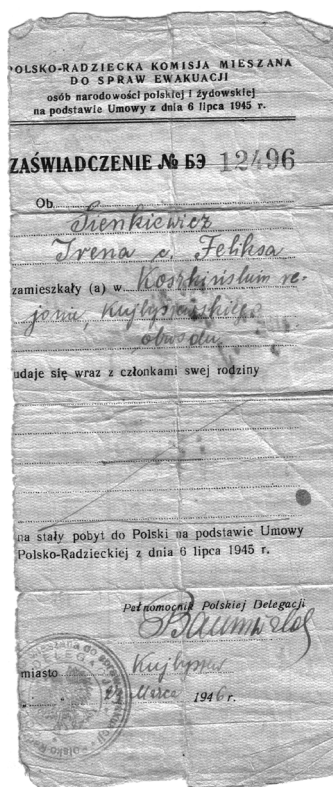 POLSKO-RADZIECKA KOMISJA MIESZANA
DO SPRAW EWAKUACJI
osób narodowości polskiej i żydowskiej
na podstawie Umowy z dnia 6 lipca 1945 r.
ZAŚWIADCZENIE № БЭ 12496
Ob.
Sienkiewicz
Irena c. Feliksa
zamieszkały (a) w. re-
jonu,
obwodu
udaje się wraz z członkami swej rodziny
na stały pobyt do Polski na podstawie Umowy
Polsko-Radzieckiej z dnia 6 lipca 1945 r.
Pełnomocnik Polskiej Delegacji
miasto Kujbyszew
Marca 1946 r.